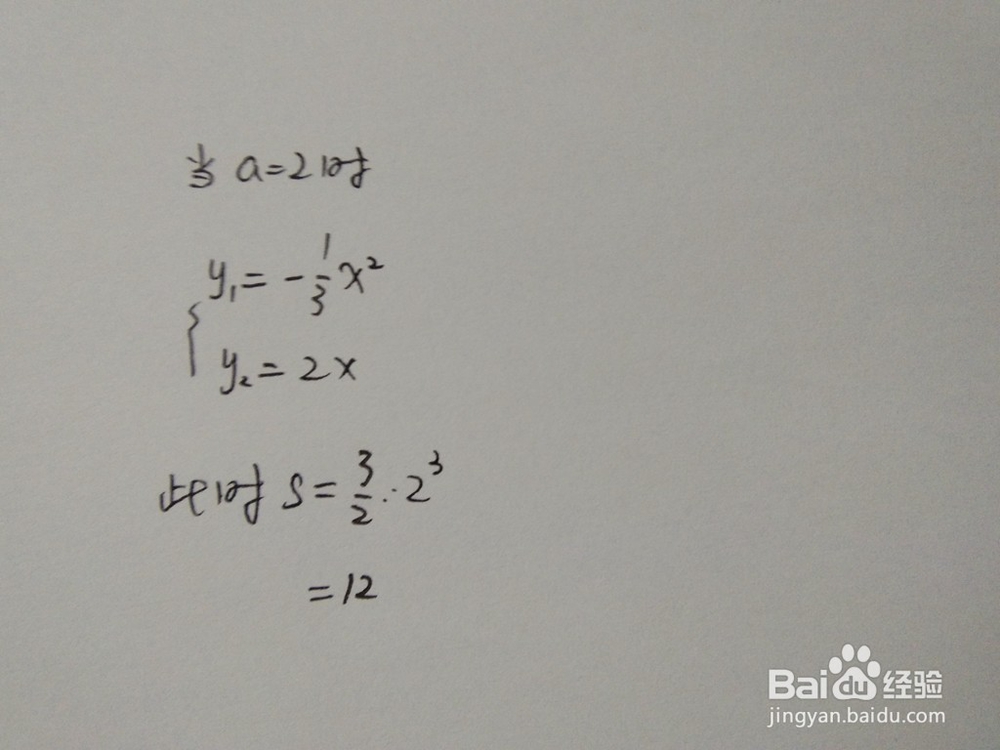 当 a=2时
y₁= -1/3 x²
y₂= 2x
此时 S= 3/2 · 2³
=12
Baidu经验
jingyan.baidu.com